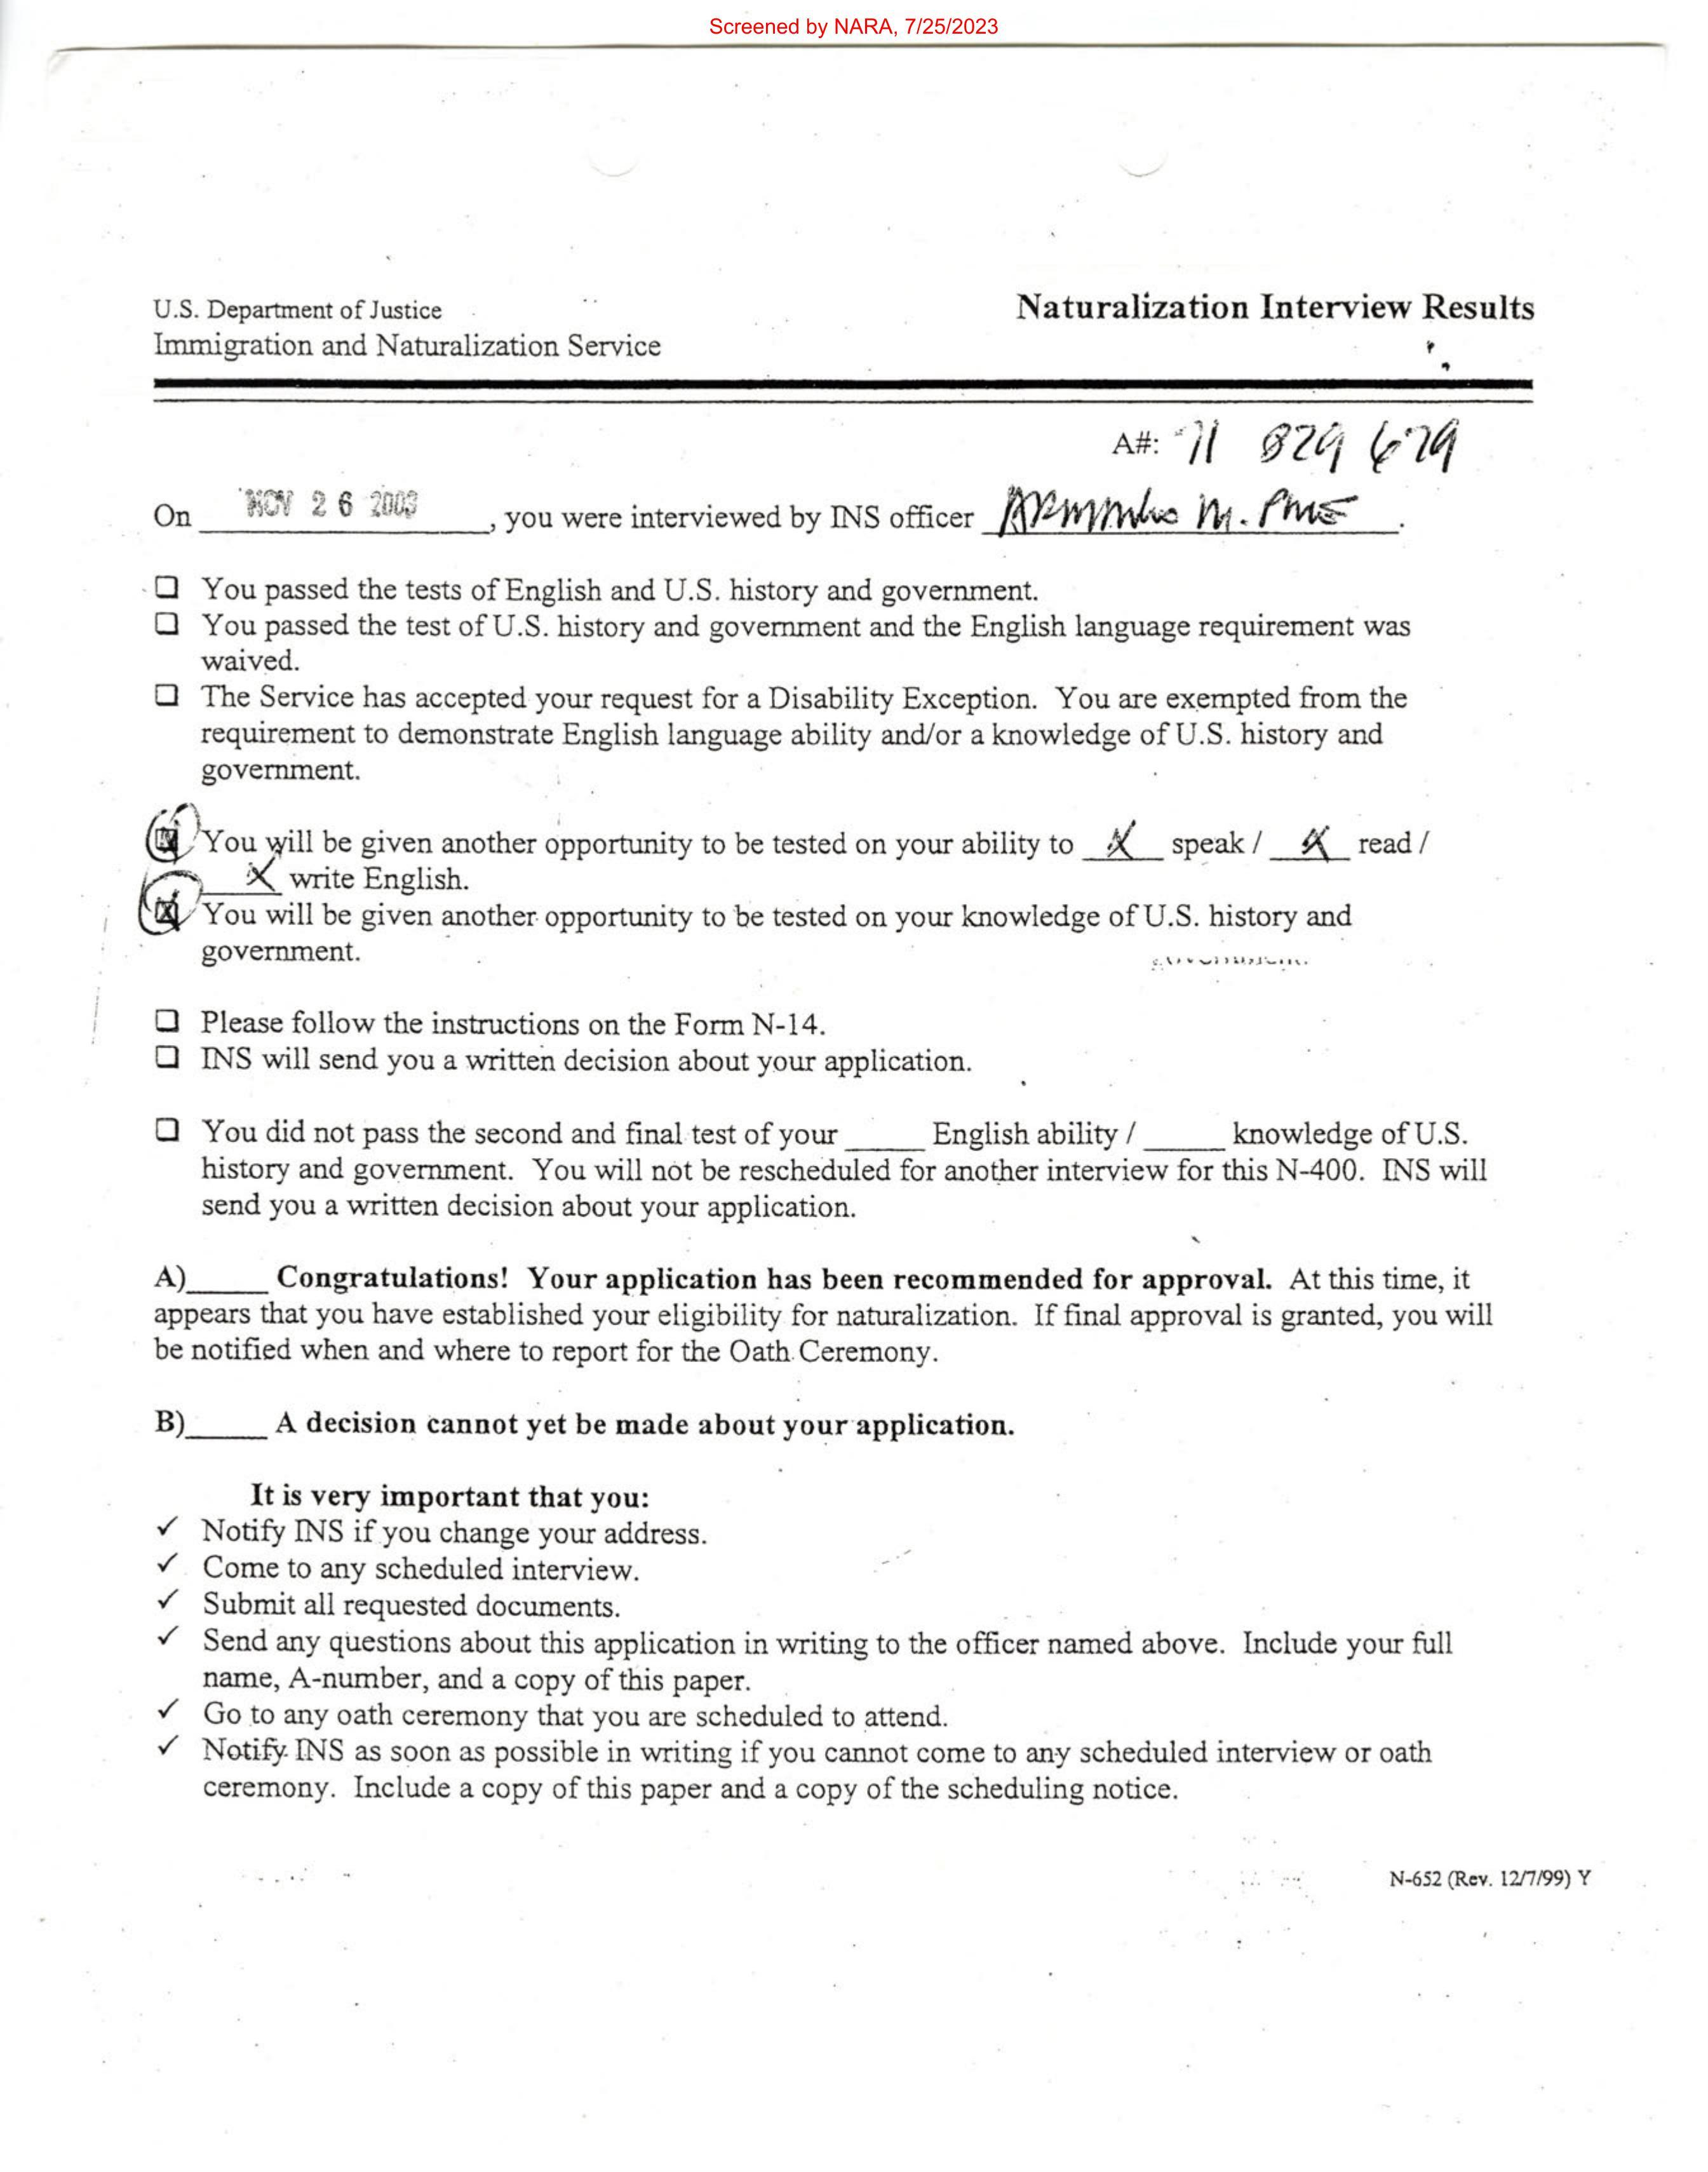 Screened by NARA, 7/25/2023
U.S. Department of Justice
Naturalization Interview Results
Immigration and Naturalization Service
A#: 71 829 679
On NOV 26 2003, you were interviewed by INS officer M.
☐ You passed the tests of English and U.S. history and government.
☐ You passed the test of U.S. history and government and the English language requirement was
waived.
☐ The Service has accepted your request for a Disability Exception. You are exempted from the
requirement to demonstrate English language ability and/or a knowledge of U.S. history and
government.
☒ You will be given another opportunity to be tested on your ability to X speak / X read /
X write English.
☒ You will be given another opportunity to be tested on your knowledge of U.S. history and
government.
☐ Please follow the instructions on the Form N-14.
☐ INS will send you a written decision about your application.
☐ You did not pass the second and final test of your _____ English ability / _____ knowledge of U.S.
history and government. You will not be rescheduled for another interview for this N-400. INS will
send you a written decision about your application.
A)_____ Congratulations! Your application has been recommended for approval. At this time, it
appears that you have established your eligibility for naturalization. If final approval is granted, you will
be notified when and where to report for the Oath Ceremony.
B)_____ A decision cannot yet be made about your application.
It is very important that you:
✓ Notify INS if you change your address.
✓ Come to any scheduled interview.
✓ Submit all requested documents.
✓ Send any questions about this application in writing to the officer named above. Include your full
name, A-number, and a copy of this paper.
✓ Go to any oath ceremony that you are scheduled to attend.
✓ Notify INS as soon as possible in writing if you cannot come to any scheduled interview or oath
ceremony. Include a copy of this paper and a copy of the scheduling notice.
N-652 (Rev. 12/7/99) Y